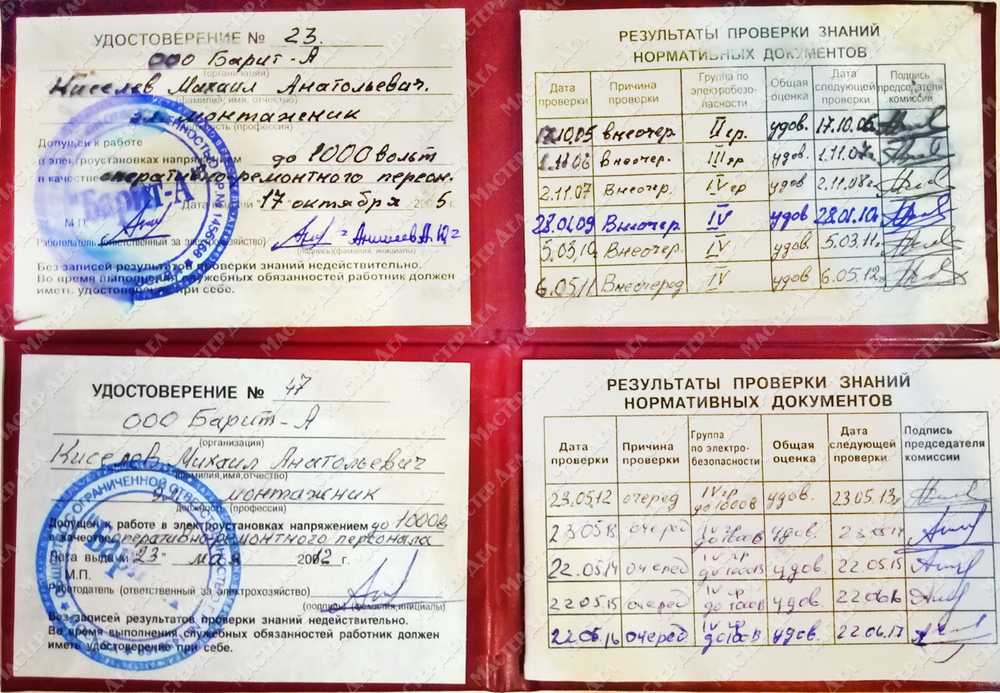 УДОСТОВЕРЕНИЕ № 23.
ООО Барит-А
(организация)
Киселев Михаил Анатольевич.
(фамилия, имя, отчество)
эл. монтажник
должность (профессия)
Допущен к работе
в электроустановках напряжением до 1000 вольт
в качестве оперативно-ремонтного персон.
Дата выдачи "17" октября 2005 г.
М.П.
Работодатель (ответственный за электрохозяйство) Анишев А.Ю.
(подпись) (фамилия, инициалы)
Без записей результатов проверки знаний недействительно.
Во время выполнения служебных обязанностей работник должен
иметь удостоверение при себе.
РЕЗУЛЬТАТЫ ПРОВЕРКИ ЗНАНИЙ
НОРМАТИВНЫХ ДОКУМЕНТОВ
Дата проверки Причина проверки Группа по электробезопасности Общая оценка Дата следующей проверки Подпись председателя комиссии
17.10.05 внеочер. II гр. удов. 17.10.06
1.11.06 Внеочер. III гр удов. 1.11.07г
2.11.07 Внеочер. IV гр удов 2.11.08г
28.01.09 Внеочер. IV удов 28.01.10г
5.03.10 Внеочер. IV удов. 5.03.11г
6.05.11 Внеочеред IV удов. 6.05.12г
УДОСТОВЕРЕНИЕ № 47
ООО Барит-А
(организация)
Киселев Михаил Анатольевич
(фамилия,имя,отчество)
эл. монтажник
должность (профессия)
Допущен к работе в электроустановках напряжением до 1000в
в качестве оперативно-ремонтного персонала
Дата выдачи "23" мая 2012 г.
М.П.
Работодатель (ответственный за электрохозяйство)
(подпись) (фамилия,инициалы)
Без записей результатов проверки знаний недействительно.
Во время выполнения служебных обязанностей работник должен
иметь удостоверение при себе.
РЕЗУЛЬТАТЫ ПРОВЕРКИ ЗНАНИЙ
НОРМАТИВНЫХ ДОКУМЕНТОВ
Дата проверки Причина проверки Группа по электро-безопасности Общая оценка Дата следующей проверки Подпись председателя комиссии
23.05.12 очеред IV гр до 1000В удов. 23.05.13г
23.05.13 очеред IV гр до 1000В удов.
22.05.14 очеред IV гр до 1000В удов. 22.05.15
22.05.15 очеред IV гр до 1000В удов. 22.06.16
22.06.16 очеред IV гр до 1000В удов. 22.06.17